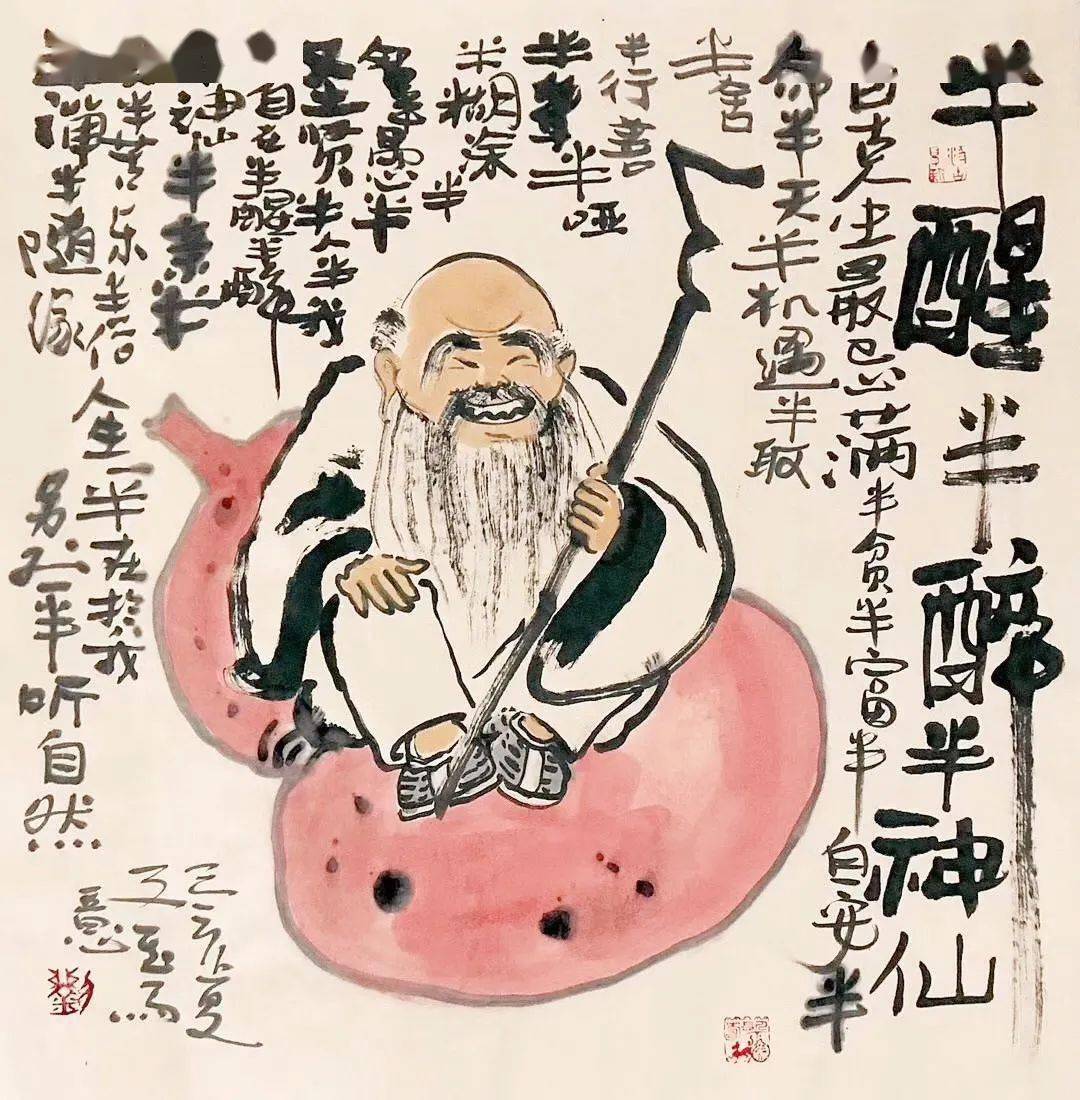 半醒半醉半神仙
自古人生最忌满半贫半富半自安半
命半天半机遇半取
半舍
半行善
半聋半哑
半糊涂半
智半愚半
圣贤半人半我
自在半醒半醉
神仙半亲半
半苦半乐半俗
禅半随缘
人生一半在於我
另外一半听自然